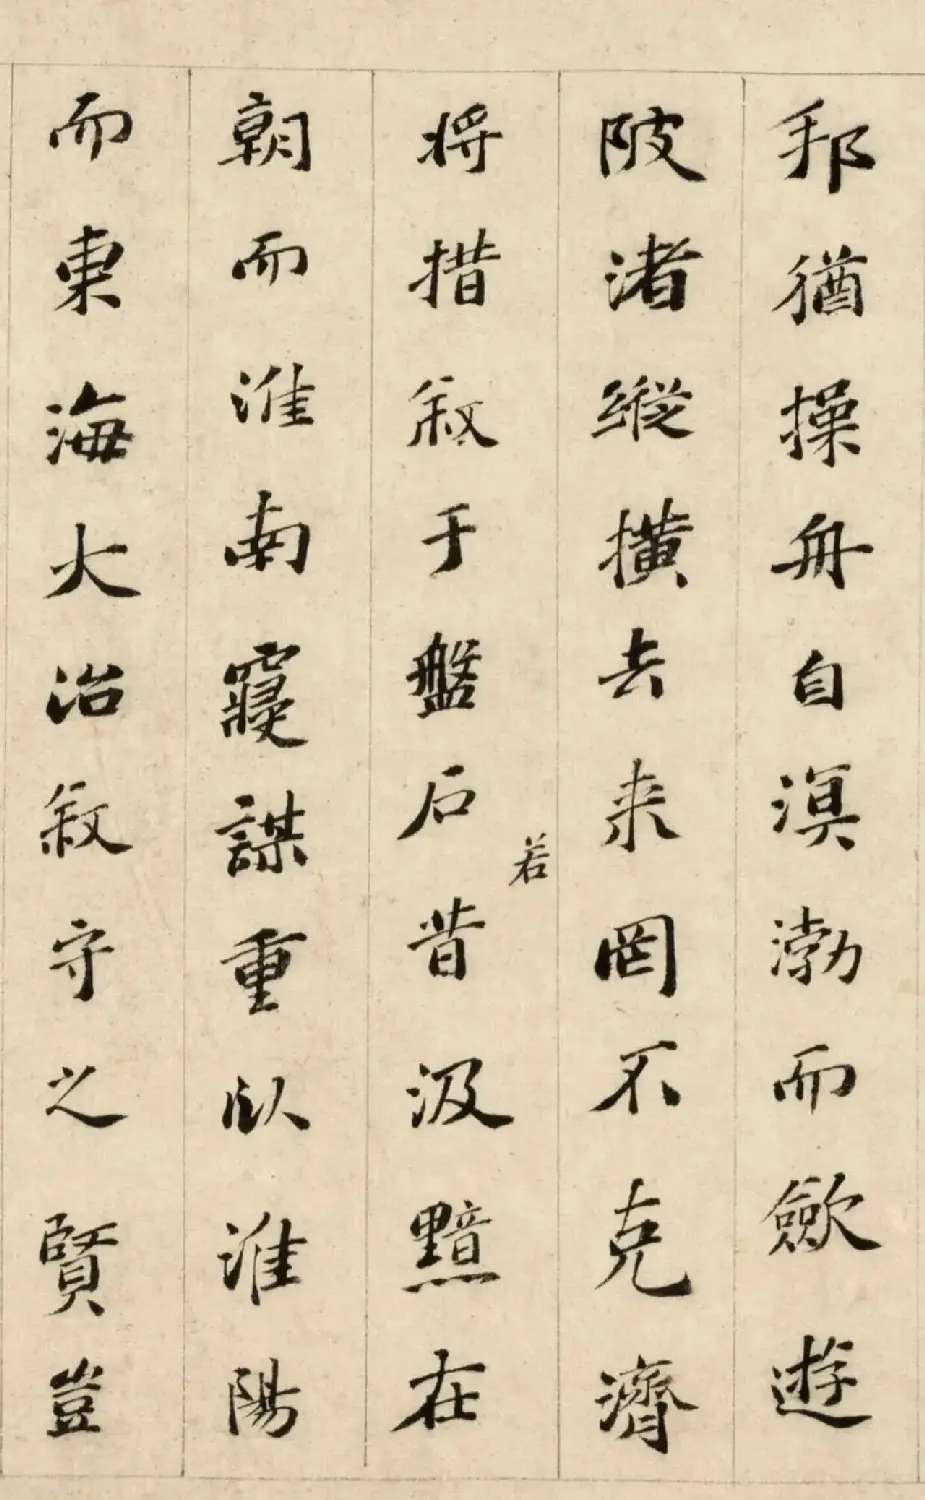 邦猶操舟自溟渤而歛遊
陂渚縱横去来罔不克濟
将措叙于盤石若昔汲黯在
朝而淮南寢謀重臥淮陽
而東海大治叙守之賢豈